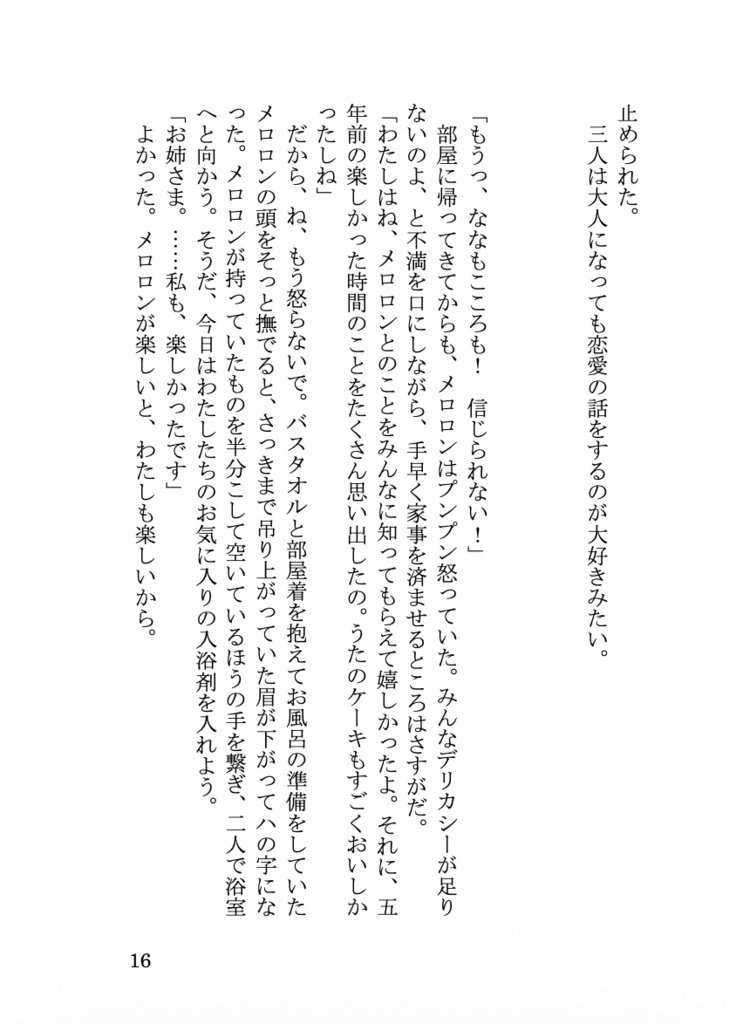 止められた。
　三人は大人になっても恋愛の話をするのが大好きみたい。
「もうっ、ななもこころも！　信じられない！」
　部屋に帰ってきてからも、メロロンはプンプン怒っていた。みんなデリカシーが足り
ないのよ、と不満を口にしながら、手早く家事を済ませるところはさすがだ。
「わたしはね、メロロンとのことをみんなに知ってもらえて嬉しかったよ。それに、五
年前の楽しかった時間のことをたくさん思い出したの。うたのケーキもすごくおいしか
ったしね」
　だから、ね、もう怒らないで。バスタオルと部屋着を抱えてお風呂の準備をしていた
メロロンの頭をそっと撫でると、さっきまで吊り上がっていた眉が下がってハの字にな
った。メロロンが持っていたものを半分こして空いているほうの手を繋ぎ、二人で浴室
へと向かう。そうだ、今日はわたしたちのお気に入りの入浴剤を入れよう。
「お姉さま。……私も、楽しかったです」
　よかった。メロロンが楽しいと、わたしも楽しいから。
16